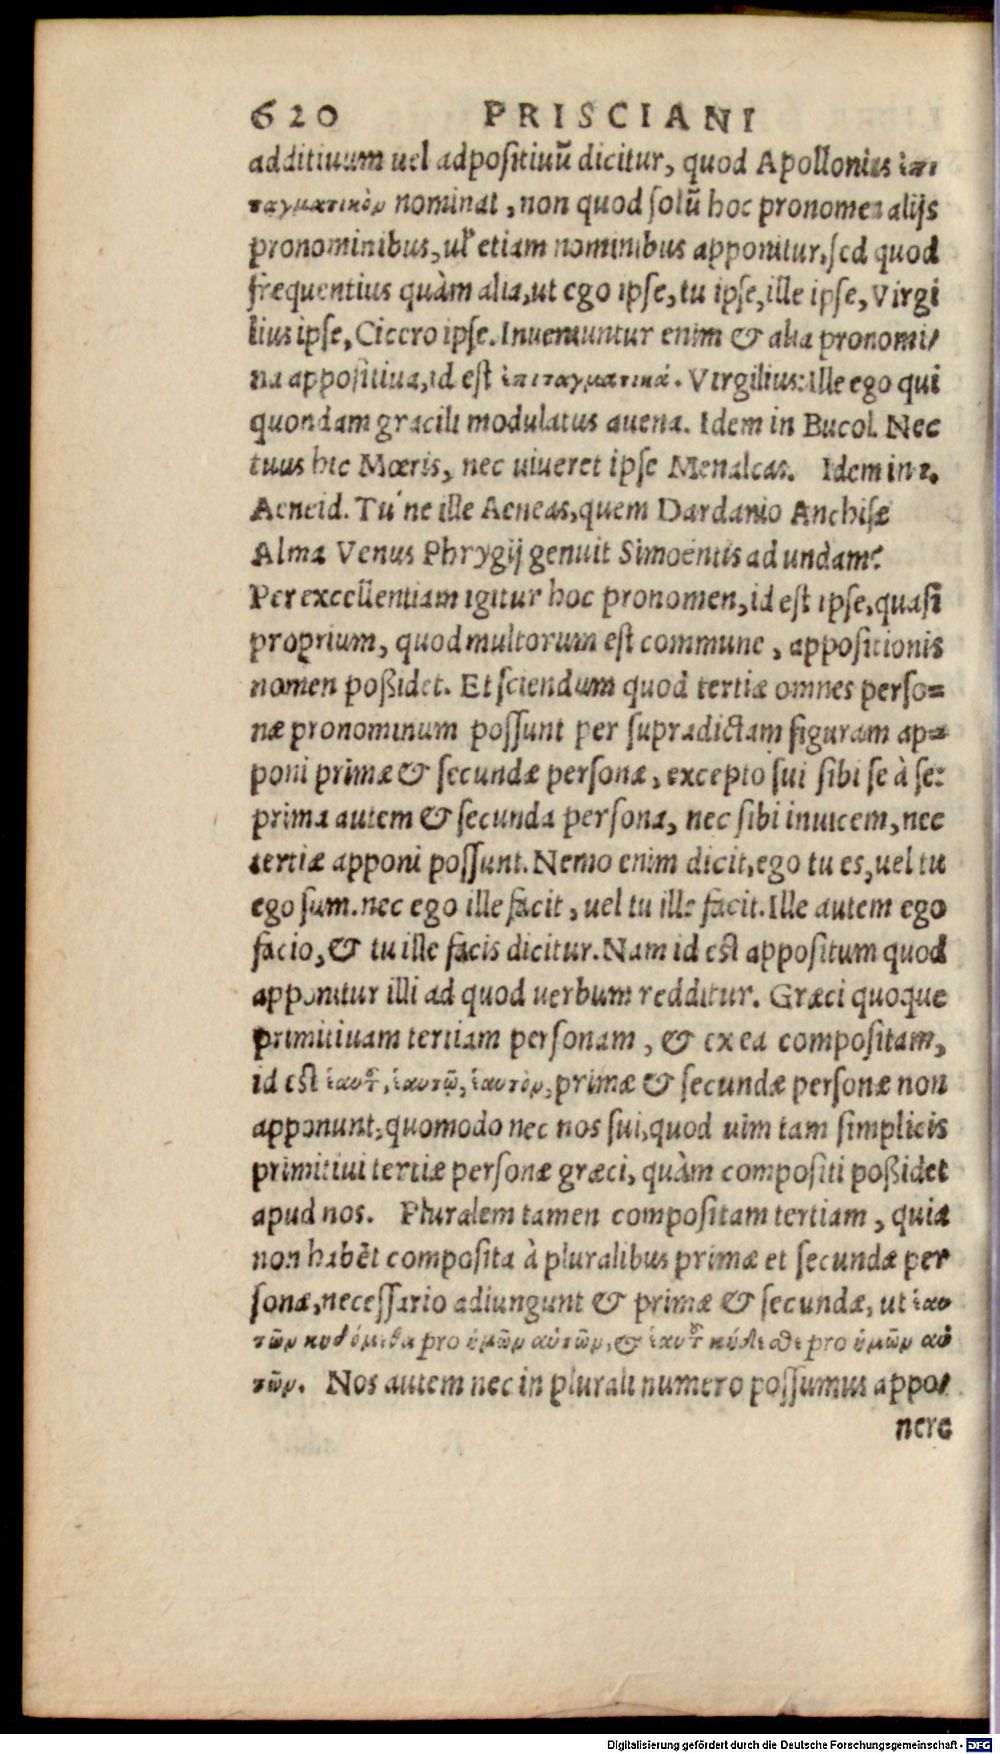 620 PRISCIANI
additiuum uel adpositiuū dicitur, quod Apollonius ἐπι
ταγματικὸν nominat, non quod solū hoc pronomen alijs
pronominibus, uľ etiam nominibus apponitur, sed quod
frequentius quàm alia, ut ego ipse, tu ipse, ille ipse, Virgi
lius ipse, Cicero ipse. Inueniuntur enim & alia pronomi/
na appositiua, id est ἐπιταγματικά. Virgilius: ille ego qui
quondam gracili modulatus auena. Idem in Bucol. Nec
tuus hic Mœris, nec uiueret ipse Menalcas. Idem in 1.
Aeneid. Tu´ne ille Aeneas, quem Dardanio Anchisæ
Alma Venus Phrygij genuit Simoentis ad undam?
Per excellentiam igitur hoc pronomen, id est ipse, quasi
proprium, quod multorum est commune, appositionis
nomen poßidet. Et sciendum quod tertiæ omnes perso=
næ pronominum possunt per supradictam figuram ap=
poni primæ & secundæ personæ, excepto sui sibi se à se:
prima autem & secunda persona, nec sibi inuicem, nec
tertiæ apponi possunt. Nemo enim dicit, ego tu es, uel tu
ego sum. nec ego ille facit, uel tu ille facit. Ille autem ego
facio, & tu ille facis dicitur. Nam id est appositum quod
apponitur illi ad quod uerbum redditur. Græci quoque
primitiuam tertiam personam, & ex ea compositam,
id est ἑαυτοῦ, ἑαυτῷ, ἑαυτὸν, primæ & secundæ personæ non
apponunt, quomodo nec nos sui, quod uim tam simplicis
primitiui tertiæ personæ græci, quàm compositi poßidet
apud nos. Pluralem tamen compositam tertiam, quia
non habēt composita à pluralibus primæ et secundæ per
sonæ, necessario adiungunt & primæ & secundæ, ut ἑαυ
τῶν κηδόμεθα pro ἡμῶν αὐτῶν, & ἑαυτοῦ κήδεσθε pro ὑμῶν αὐ
τῶν. Nos autem nec in plurali numero possumus appo/
nere
Digitalisierung gefördert durch die Deutsche Forschungsgemeinschaft - DFG